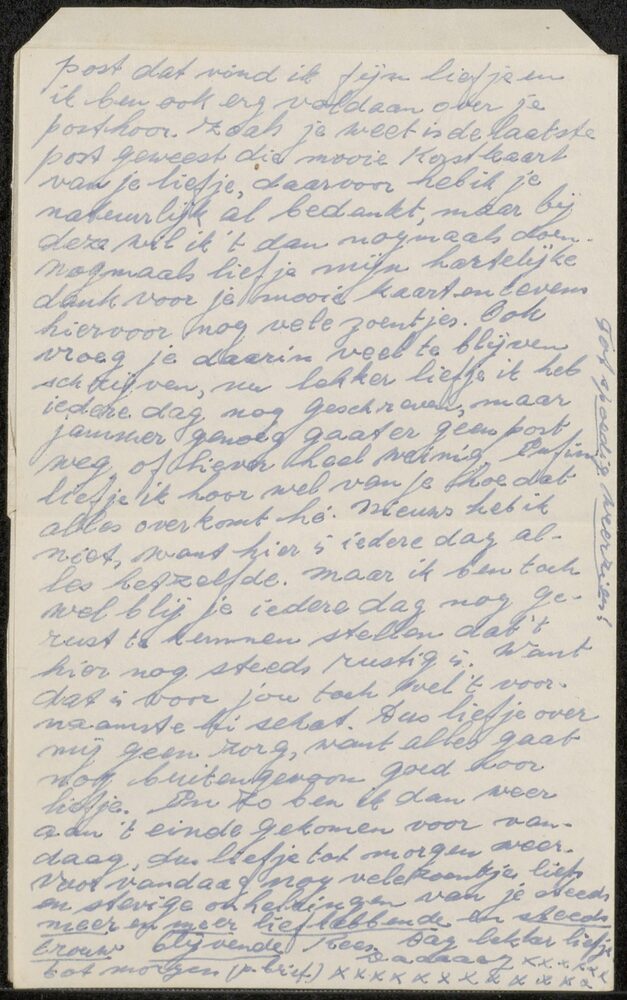 post dat vind ik fijn liefje en
ik ben ook erg voldaan over je
posthoor. Zoals je weet is de laatste
post geweest die mooie Kerstkaart
van je liefje, daarvoor heb ik je
natuurlijk al bedankt, maar bij
deze wil ik 't dan nogmaals doen.
Nogmaals liefje mijn hartelijke
dank voor je mooie kaart en tevens
hiervoor nog vele zoentjes. Ook
vroeg je daarin veel te blijven
schrijven, nu lekker liefje ik heb
iedere dag nog geschreven, maar
jammer genoeg gaat er geen post
weg, of liever heel weinig. Enfin
liefje ik hoor wel van je hoe dat
alles overkomt hé. Nieuws heb ik
niet, want hier is iedere dag al-
les hetzelfde. Maar ik ben toch
wel blij je iedere dag nog ge-
rust te kunnen stellen dat 't
hier nog steeds rustig is. Want
dat is voor jou toch wel 't voor-
naamste hi schat. Dus liefje over
mij geen zorg, want alles gaat
nog buitengewoon goed hoor
liefje. En zo ben ik dan weer
aan 't einde gekomen voor van-
daag, dus liefje tot morgen weer.
Voor vandaag nog vele zoentjes liefs
en stevige omhelzingen van je steeds
meer en meer liefhebbende en steeds
trouw blijvende Kees Dag lekker liefje
tot morgen (p. brief) Daaaaag xxxxxx
x x x x x x x x x x x x
Tot spoedig weerziens!